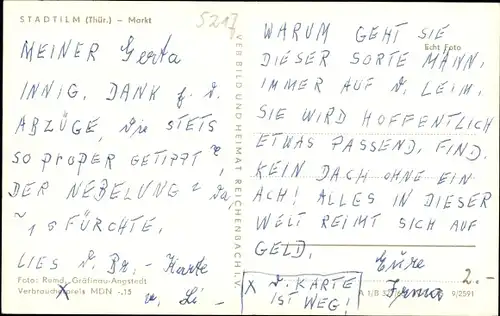 STADTILM (Thür.) – Markt
5217
MEINER Gerta
INNIG. DANK f. d.
ABZÜGE, die STETS
SO PROPER GETIPPT
DER NEBELUNG
FÜRCHTE.
LIES d. Br.- Karte
Foto: Remd, Gräfinau-Angstedt
Verbraucherpreis MDN -.15
v. Li -
VEB BILD UND HEIMAT REICHENBACH I. V.
WARUM GEHT SIE
Echt Foto
DIESER SORTE MÄNN.
IMMER AUF D. LEIM.
SIE WIRD HOFFENTLICH
ETWAS PASSEND. FIND.
KEIN DACH OHNE EIN
ACH! ALLES IN DIESER
WELT REIMT SICH AUF
GELD.
Eure
Irma
2.-
X D. KARTE
IST WEG!
9/2591